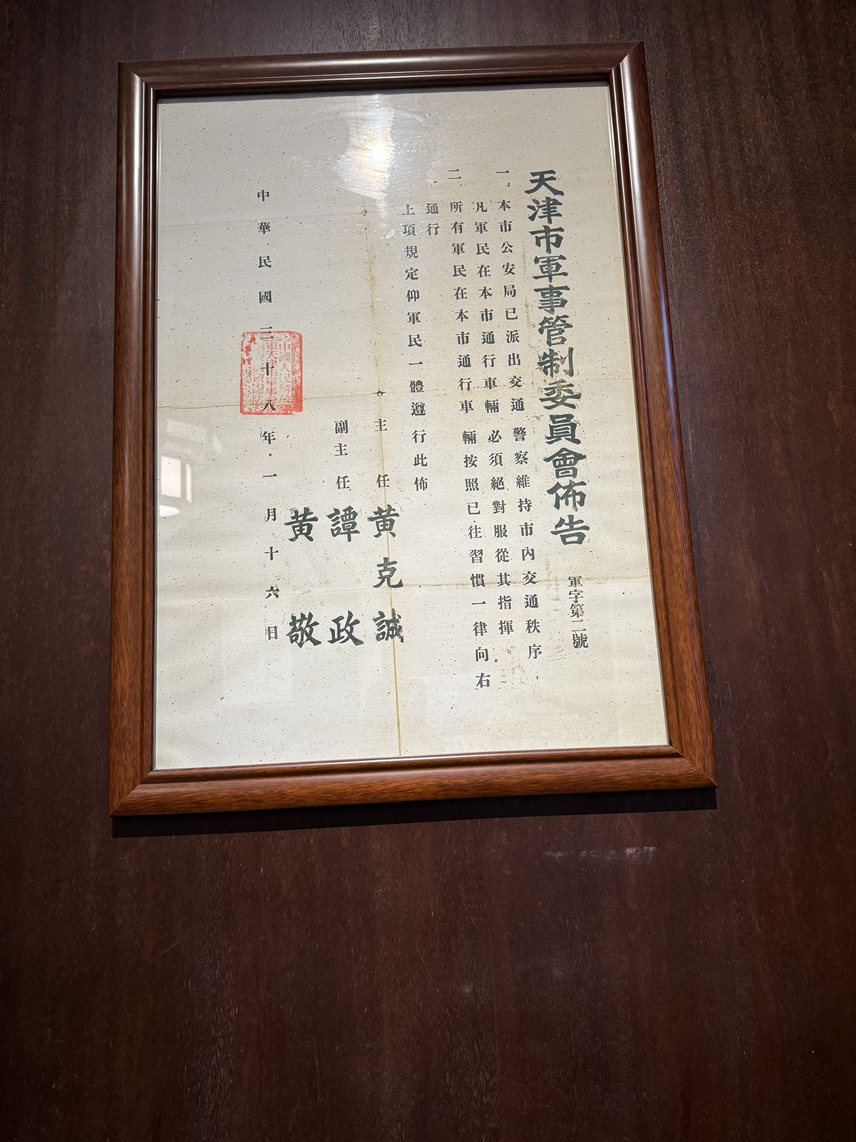 天津市軍事管制委員會佈告
軍字第二號
一，本市公安局已派出交通警察維持市內交通秩序，
凡軍民在本市通行車輛必須絕對服從其指揮．
二．所有軍民在本市通行車輛按照已往習慣一律向右
通行
上項規定仰軍民一體遵行此佈
主任 黃克誠
副主任 譚政
黃敬
中華民國三十八年一月十六日